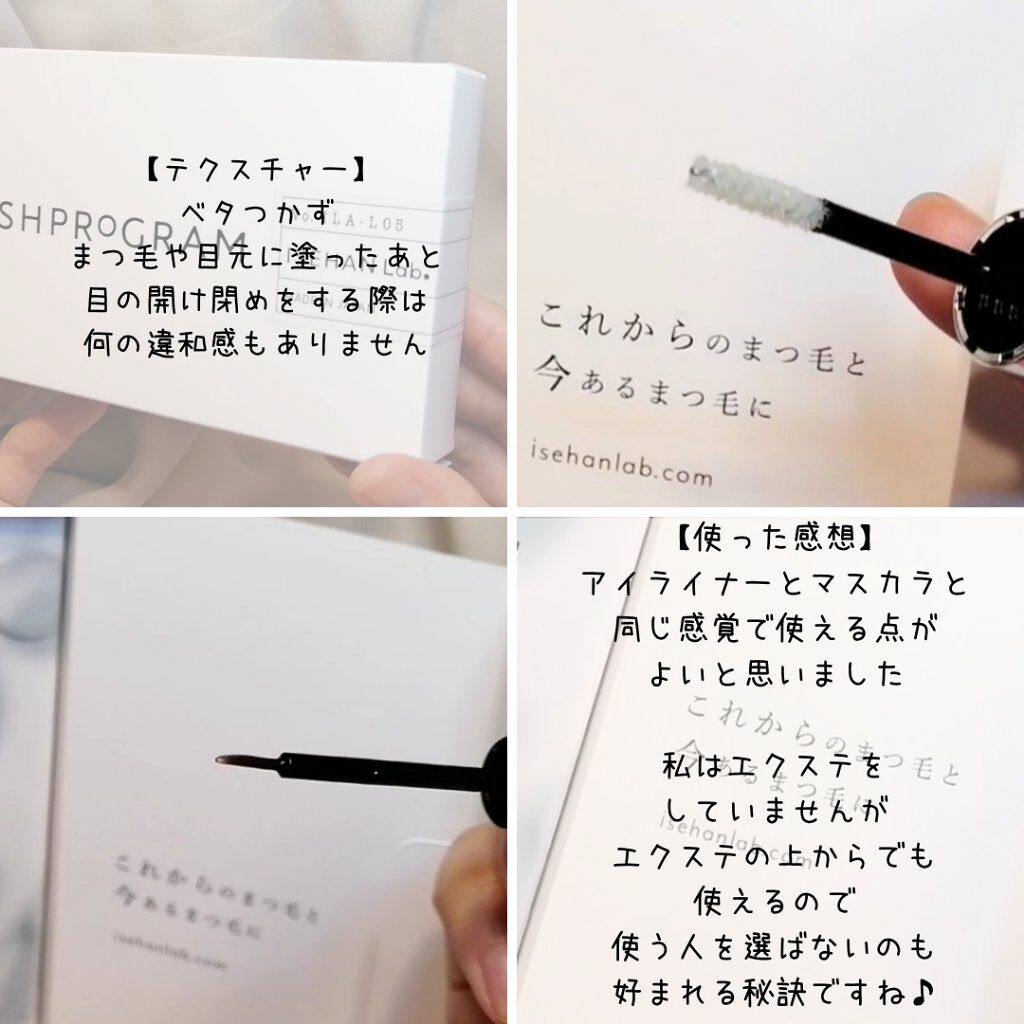 【テクスチャー】
ベタつかず
まつ毛や目元に塗ったあと
目の開け閉めをする際は
何の違和感もありません
SHPROGRAM
LA-L05
EHAN Lab.
これからのまつ毛と
今あるまつ毛に
isehanlab.com
これからのまつ毛と
今あるまつ毛に
isehanlab.com
【使った感想】
アイライナーとマスカラと
同じ感覚で使える点が
よいと思いました
これからのまつ毛と
今あるまつ毛に
isehanlab.com
私はエクステを
していませんが
エクステの上からでも
使えるので
使う人を選ばないのも
好まれる秘訣ですね♪